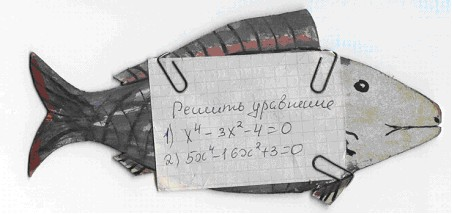 Решить уравнение
1) x⁴ - 3x² - 4 = 0
2) 5x⁴ - 16x² + 3 = 0